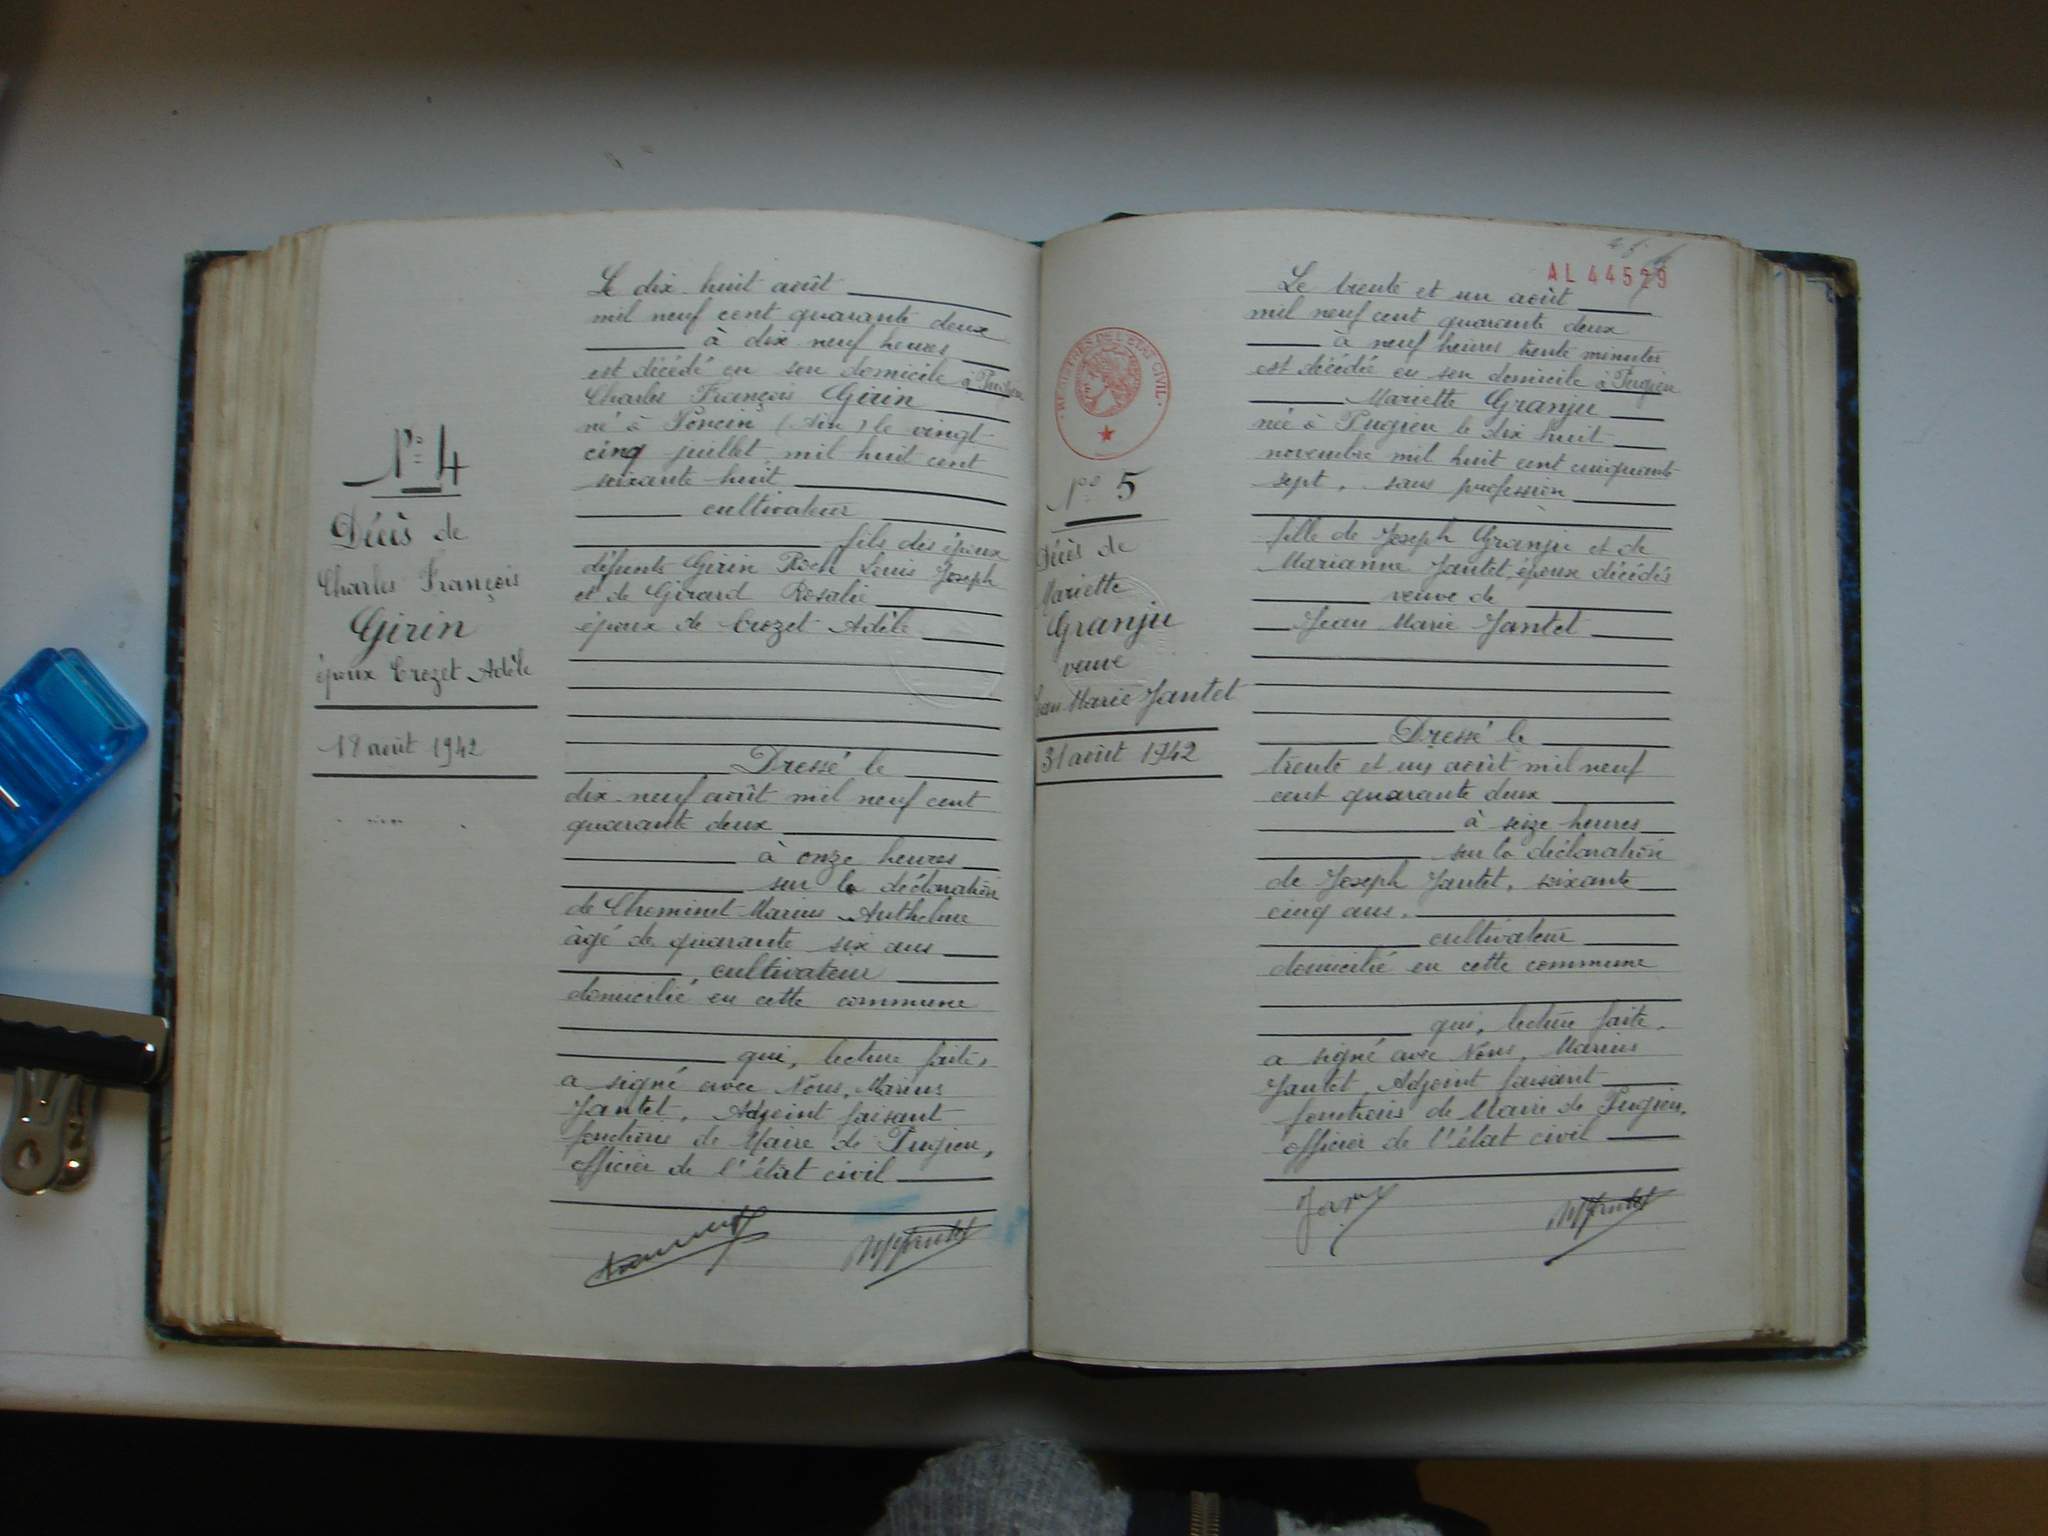 N° 4
Décès de
Charles François
Girin
époux Crozet Adèle
18 août 1942
Le dix-huit août
mil neuf cent quarante deux
à dix-neuf heures
est décédé en son domicile à Pugieu
Charles François Girin
né à Poncin (Ain) le vingt-
cinq juillet mil huit cent
soixante-huit
cultivateur
fils des époux
défunts Girin Roch Louis Joseph
et de Girard Rosalie
époux de Crozet Adèle
Dressé le
dix-neuf août mil neuf cent
quarante deux
à onze heures
sur la déclaration
de Cheminet Marius Anthelme
âgé de quarante six ans
, cultivateur
domicilié en cette commune
qui, lecture faite,
a signé avec Nous, Marius
Jantet, Adjoint faisant
fonctions de Maire de Pugieu,
officier de l'état civil
AL 44529
REGISTRES DE L'ETAT CIVIL
N° 5
Décès de
Mariette
Granju
veuve
Jean Marie Jantet
31 août 1942
Le trente et un août
mil neuf cent quarante deux
à neuf heures trente minutes
est décédée en son domicile à Pugieu
Mariette Granju
née à Pugieu le dix huit
novembre mil huit cent cinquante
sept, sans profession
fille de Joseph Granju et de
Marianne Jantet, époux décédés
veuve de
Jean Marie Jantet
Dressé le
trente et un août mil neuf
cent quarante deux
à seize heures
sur la déclaration
de Joseph Jantet, soixante
cinq ans,
cultivateur
domicilié en cette commune
qui, lecture faite,
a signé avec Nous, Marius
Jantet Adjoint faisant
fonctions de Maire de Pugieu,
officier de l'état civil